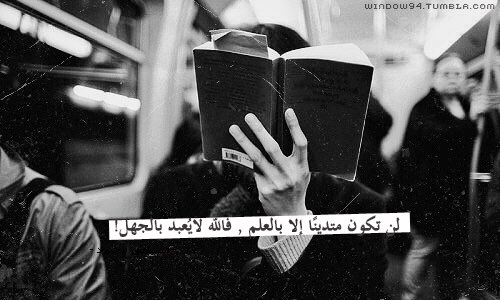 WINDOW94.TUMBLR.COM
لن تكون متدينًا إلا بالعلم , فالله لايُعبد بالجهل!